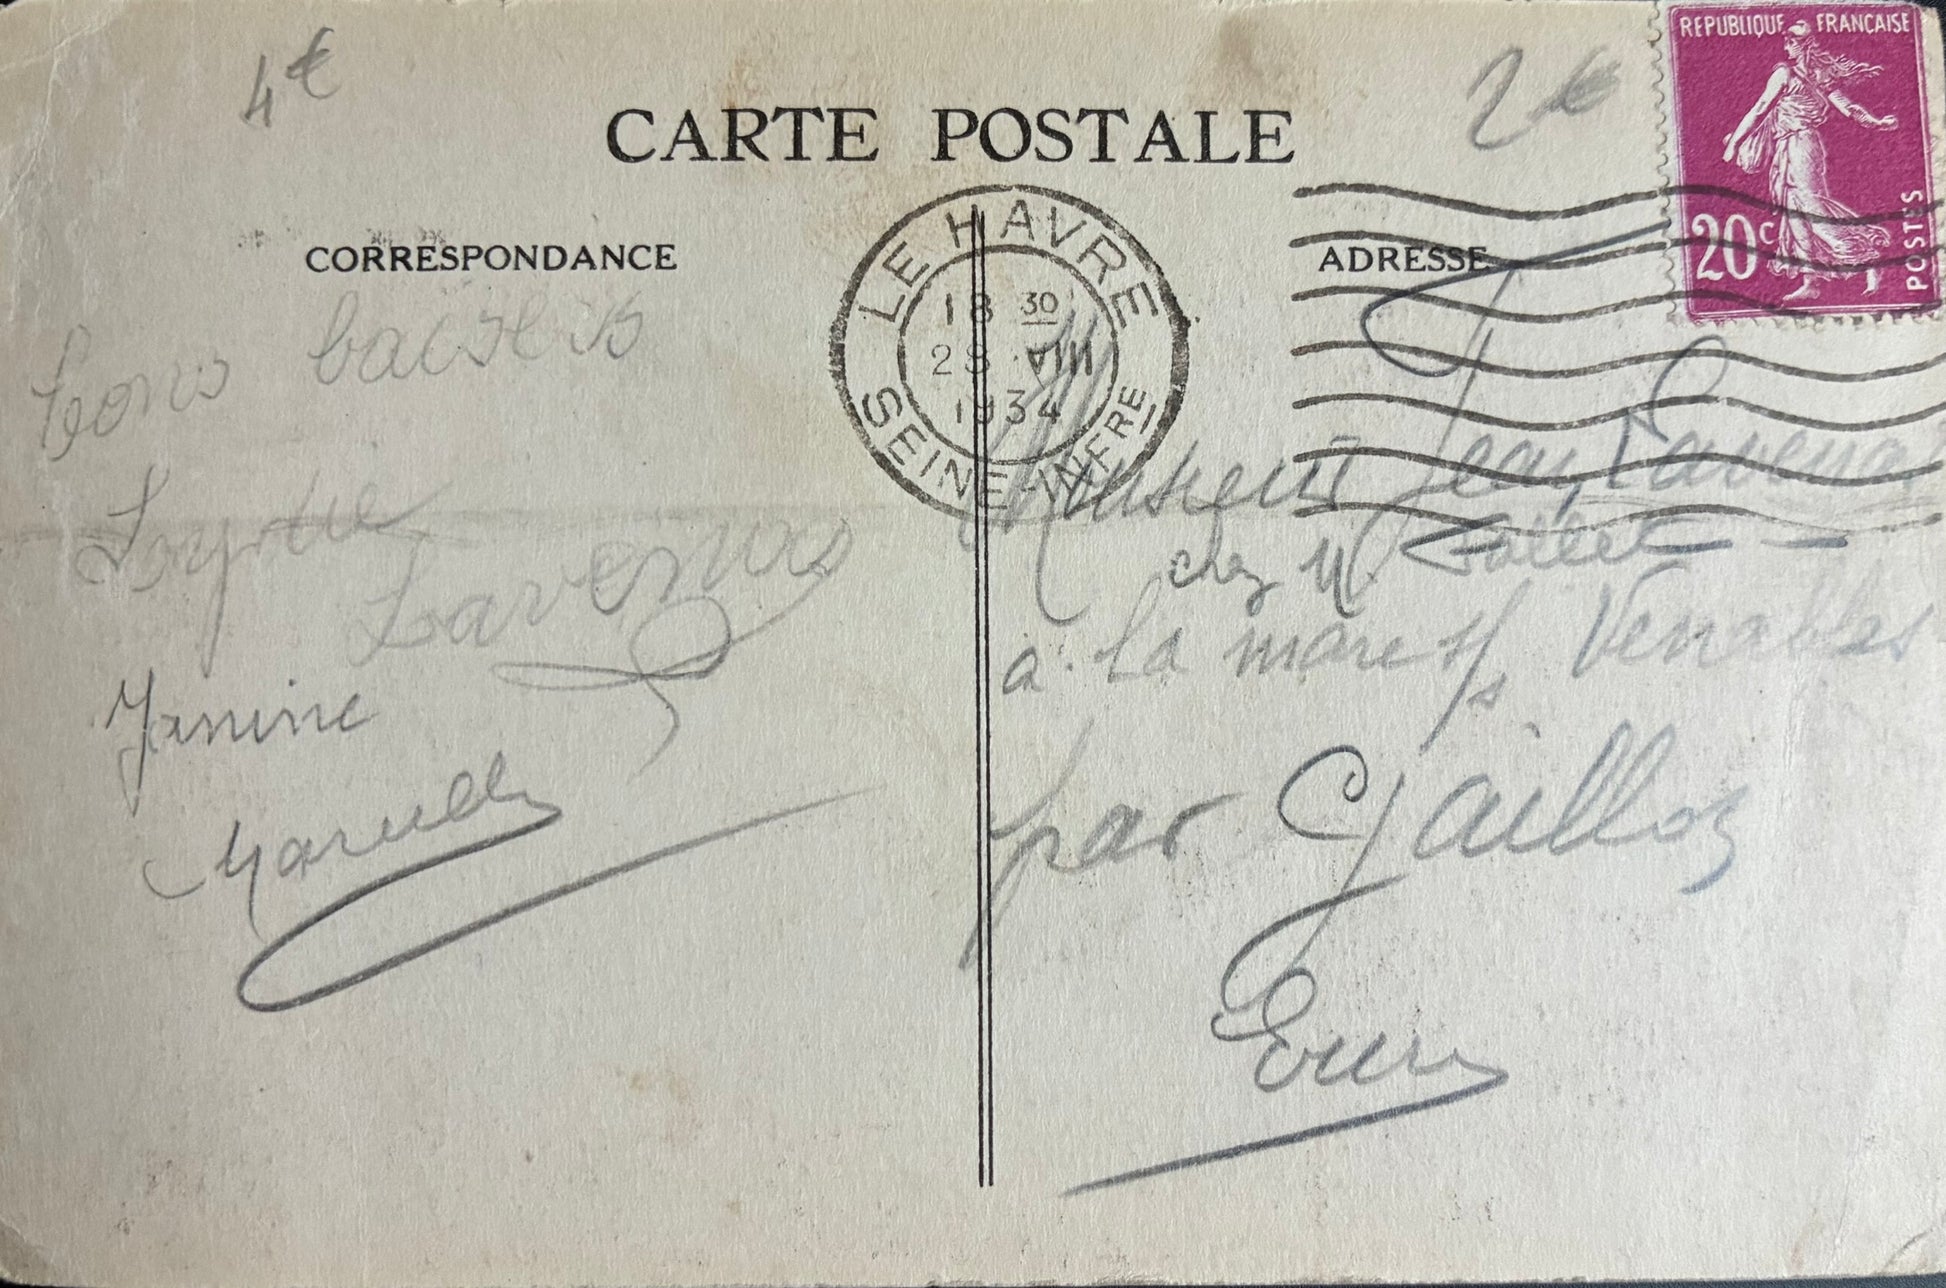 4€
2€
REPUBLIQUE FRANÇAISE
20c
POSTES
CARTE POSTALE
CORRESPONDANCE
ADRESSE
LE HAVRE
18 30
28 VIII
1934
SEINE-INFRE
bons baisers
Lavenu
Janine
Marcelle
Monsieur Jean Lavenu
chez M.
à la mare s/s Venables
par Gaillon
Eure